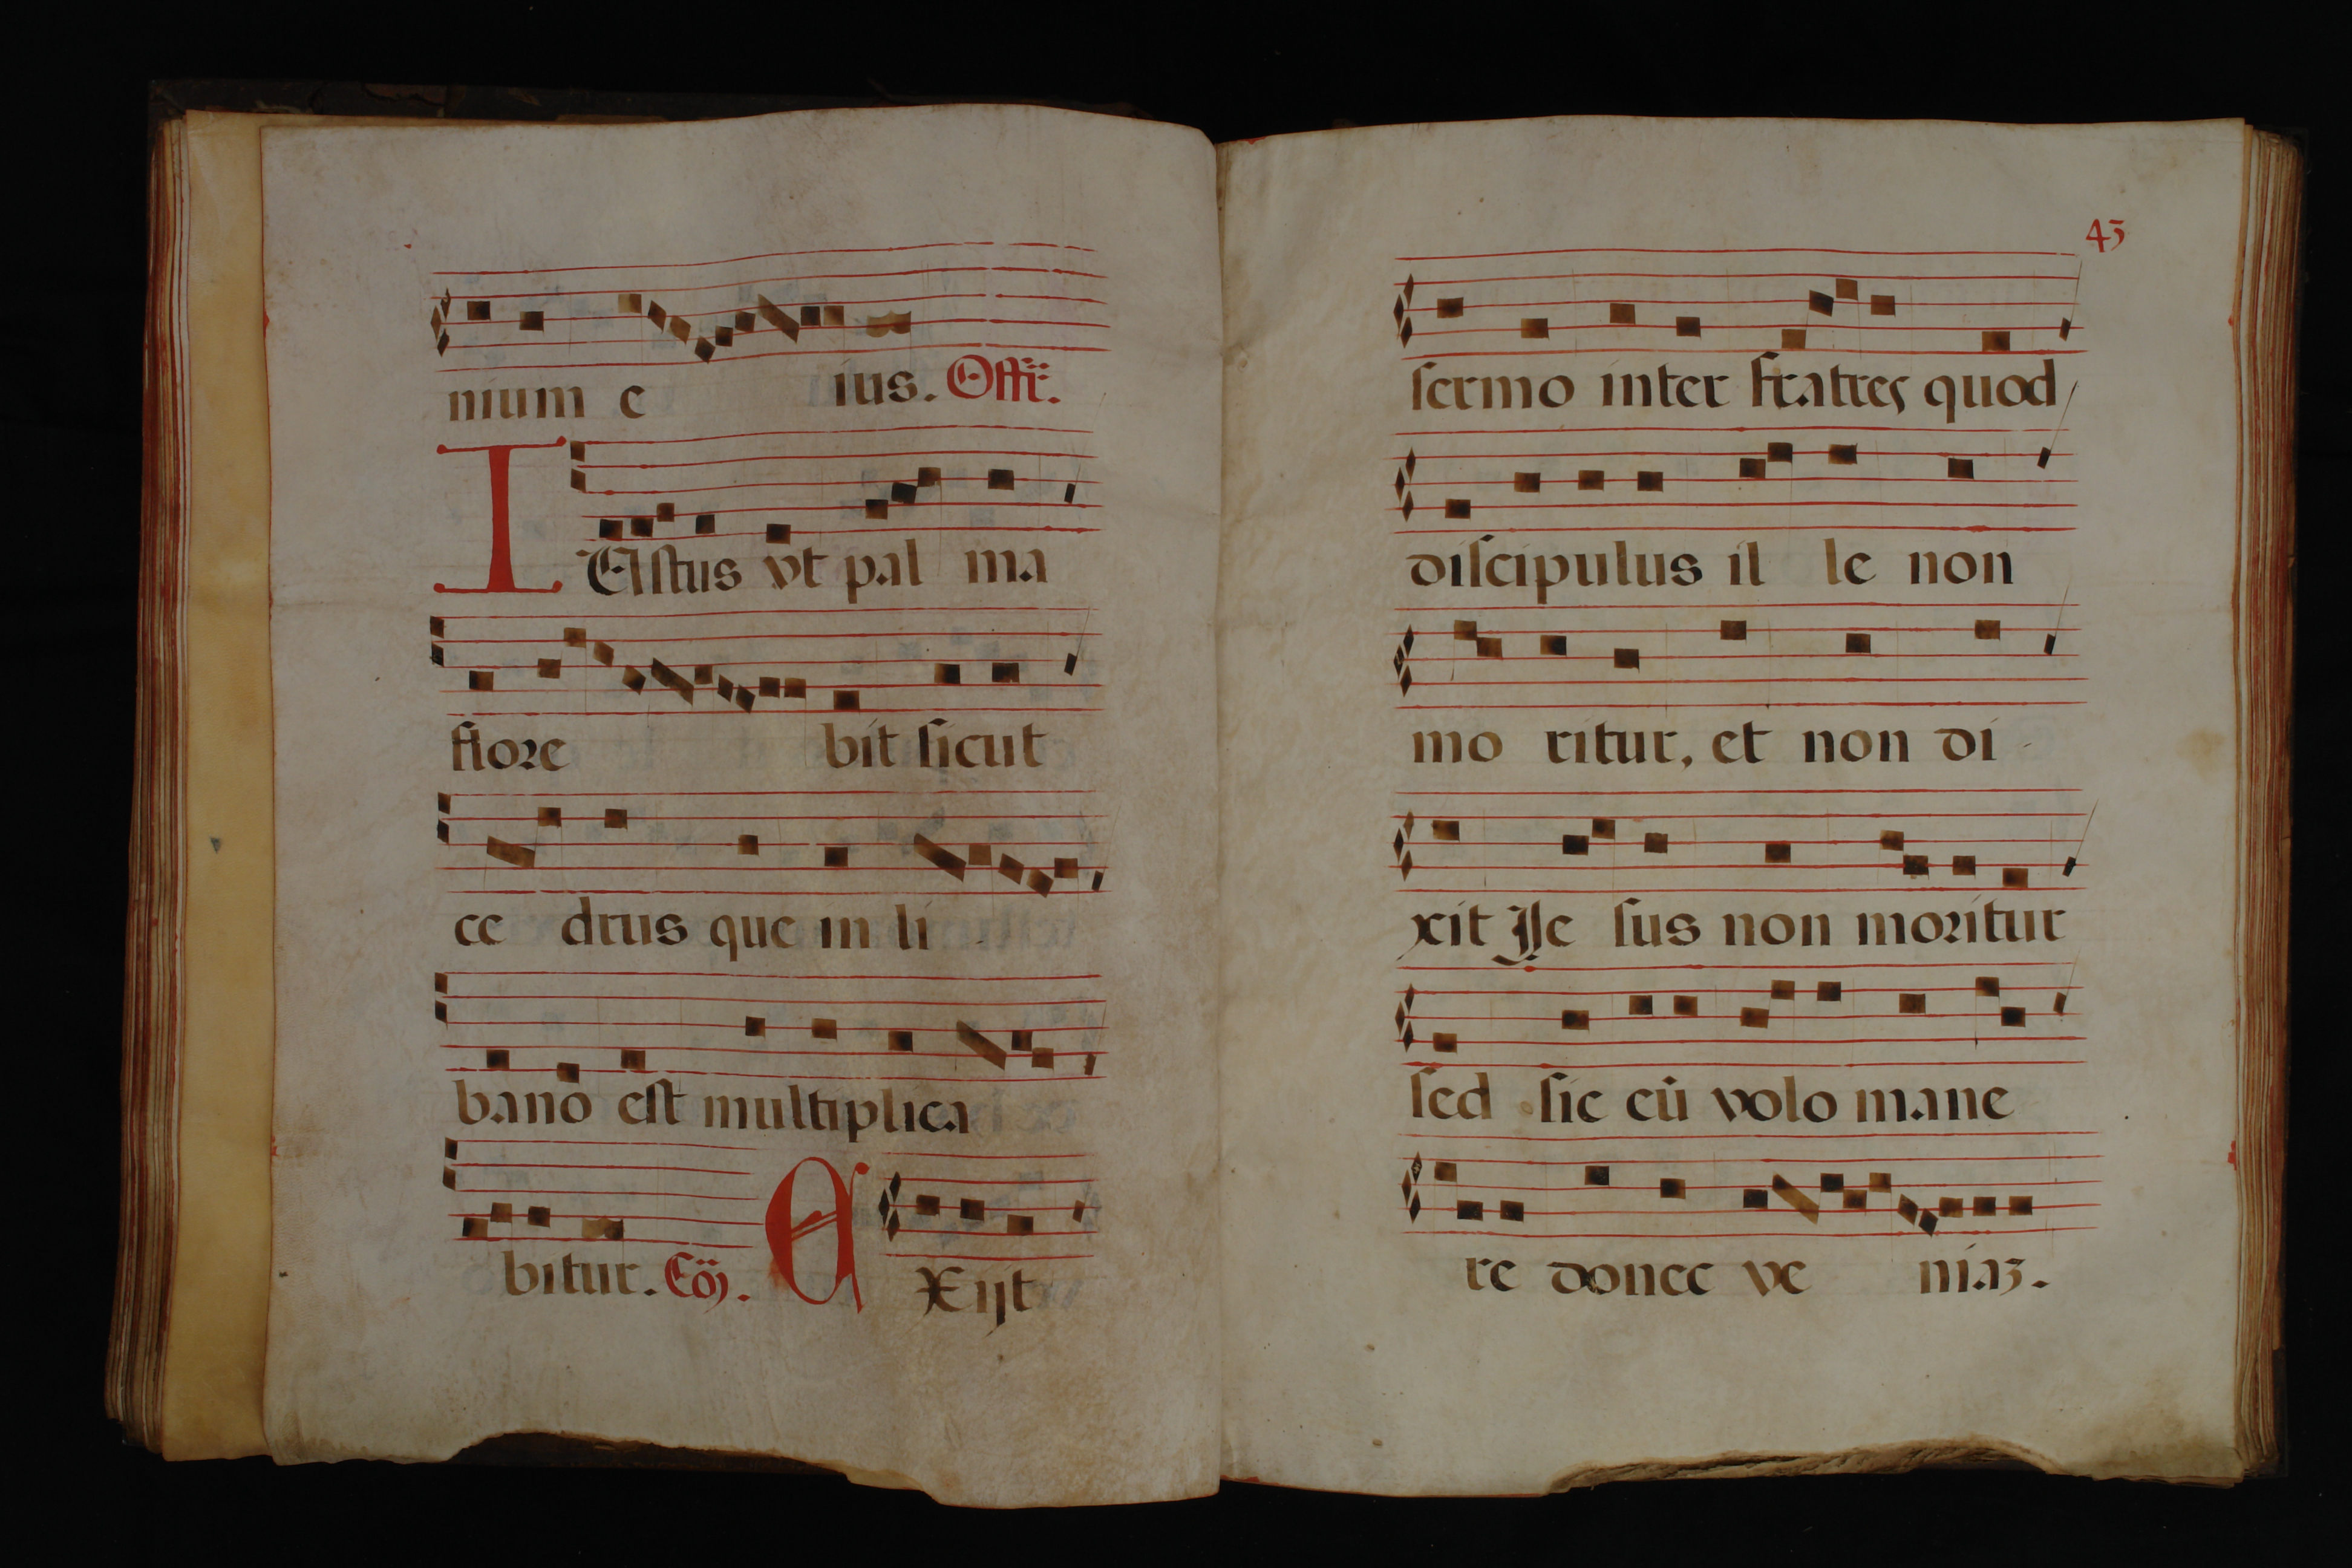 nium e ius. Offr̃.
IUstus vt pal ma
flore bit sicut
ce drus que in li -
bano est multiplica
bitur. Cõ.
EXijt
43
sermo inter fratres quod
discipulus il le non
mo ritur, et non di -
xit Je sus non moritur
sed sic cũ volo mane
re donec ve niaz.